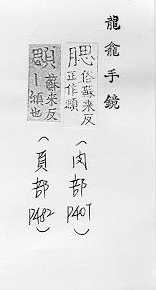 龍龕手鏡
腮俗蘇来反
正作顋
(肉部 P407)
顋蘇来反
丨頷也
(頁部 P482)